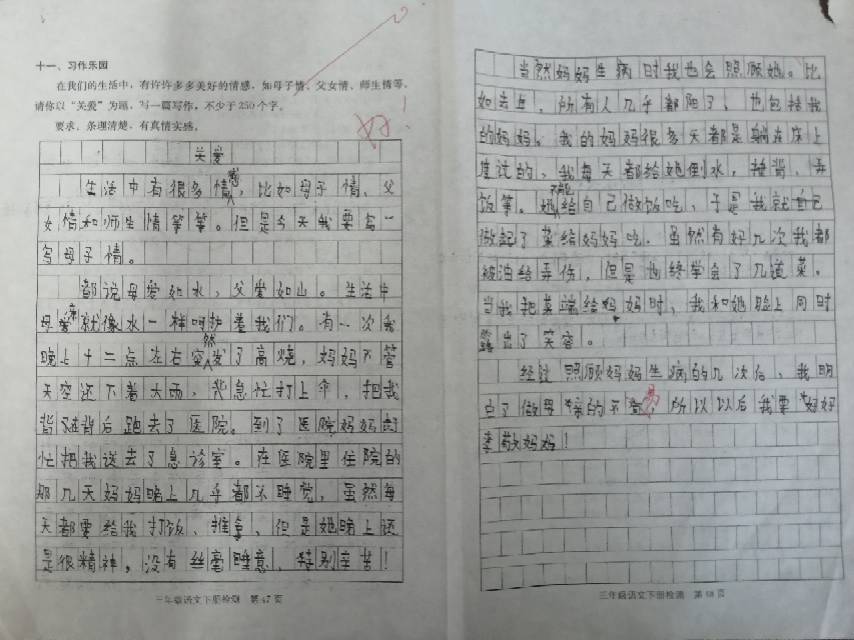 十一、习作乐园
在我们的生活中，有许许多多美好的情感，如母子情、父女情、师生情等。
请你以“关爱”为题，写一篇写作，不少于250个字。
要求：条理清楚，有真情实感。
好！
关爱
生活中有很多情感，比如母子情、父
女情和师生情等等。但是今天我要写一
写母子情。
都说母爱如水，父爱如山。生活中
母亲就像水一样呵护着我们。有一次我
晚上十二点左右突然发了高烧，妈妈不管
天空还下着大雨，急忙打上伞，把我
背背后跑去了医院。到了医院妈妈赶
忙把我送去了急诊室。在医院里住院的
那几天妈妈晚上几乎都不睡觉，虽然每
天都要给我打饭、推拿，但是她晚上还
是很精神，没有丝毫睡意，特别辛苦！
三年级语文下册检测 第47页
当然妈妈生病时我也会照顾她。比
如去年，所有人几乎都阳了，也包括我
的妈妈。我的妈妈很多天都是躺在床上
度过的，我每天都给她倒水，捶背、弄
饭等。她不能给自己做饭吃，于是我就自己
做起了菜给妈妈吃，虽然有好几次我都
被油给弄伤，但是也终学会了几道菜。
当我把菜端给妈妈时，我和她脸上同时
露出了笑容。
经过照顾妈妈生病的几次后，我明
白了做母亲的不易，所以以后我要好好
孝敬妈妈！
三年级语文下册检测 第48页